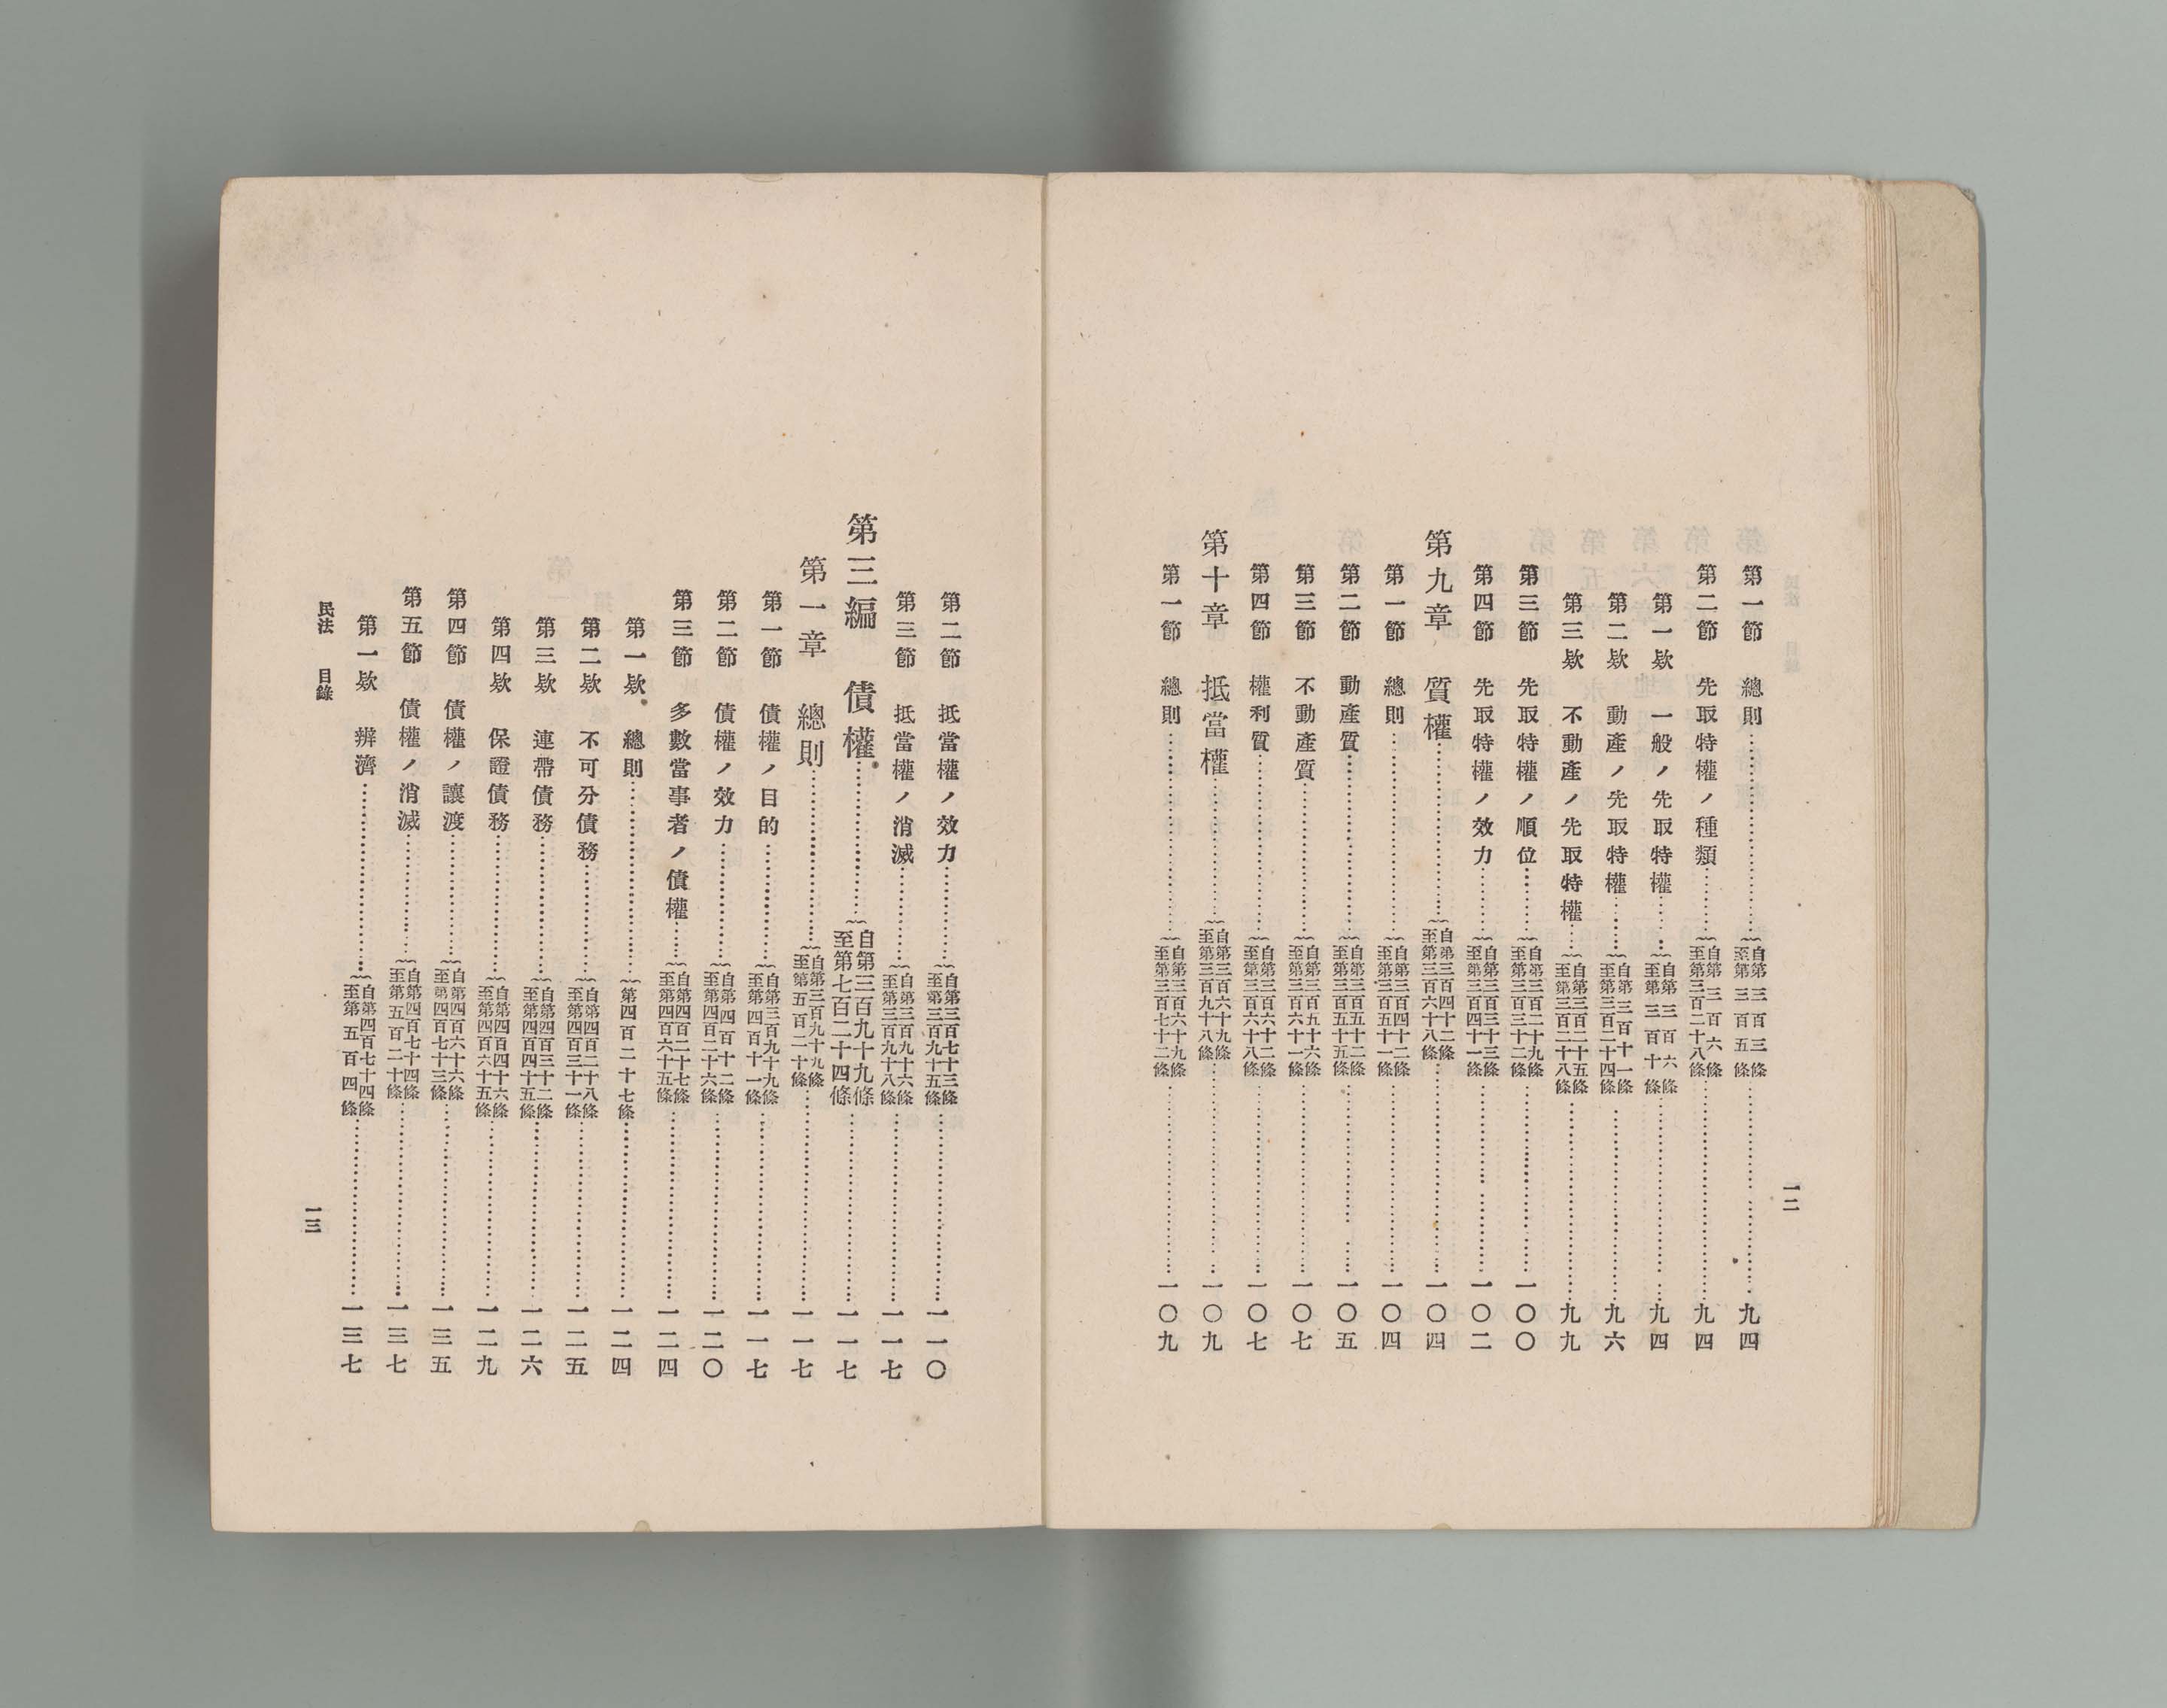 第一節　總則…………自第三百三條至第三百五條…………九四
第二節　先取特權ノ種類…………自第三百六條至第三百二十八條…………九四
第一欵　一般ノ先取特權…………自第三百六條至第三百十條…………九四
第二欵　動產ノ先取特權…………自第三百十一條至第三百二十四條…………九六
第三欵　不動產ノ先取特權…………自第三百二十五條至第三百二十八條…………九九
第三節　先取特權ノ順位…………自第三百二十九條至第三百三十二條…………一〇〇
第四節　先取特權ノ效力…………自第三百三十三條至第三百四十一條…………一〇二
第九章　質權…………自第三百四十二條至第三百六十八條…………一〇四
第一節　總則…………自第三百四十二條至第三百五十一條…………一〇四
第二節　動產質…………自第三百五十二條至第三百五十五條…………一〇五
第三節　不動產質…………自第三百五十六條至第三百六十一條…………一〇七
第四節　權利質…………自第三百六十二條至第三百六十八條…………一〇七
第十章　抵當權…………自第三百六十九條至第三百九十八條…………一〇九
第一節　總則…………自第三百六十九條至第三百七十二條…………一〇九
一二
第二節　抵當權ノ效力…………自第三百七十三條至第三百九十五條…………一一〇
第三節　抵當權ノ消滅…………自第三百九十六條至第三百九十八條…………一一七
第三編　債權…………自第三百九十九條至第七百二十四條…………一一七
第一章　總則…………自第三百九十九條至第五百二十條…………一一七
第一節　債權ノ目的…………自第三百九十九條至第四百十一條…………一一七
第二節　債權ノ效力…………自第四百十二條至第四百二十六條…………一二〇
第三節　多數當事者ノ債權…………自第四百二十七條至第四百六十五條…………一二四
第一欵　總則…………第四百二十七條…………一二四
第二欵　不可分債務…………自第四百二十八條至第四百三十一條…………一二五
第三欵　連帶債務…………自第四百三十二條至第四百四十五條…………一二六
第四欵　保證債務…………自第四百四十六條至第四百六十五條…………一二九
第四節　債權ノ讓渡…………自第四百六十六條至第四百七十三條…………一三五
第五節　債權ノ消滅…………自第四百七十四條至第五百二十條…………一三七
第一欵　辨濟…………自第四百七十四條至第五百四條…………一三七
民法　目錄
一三